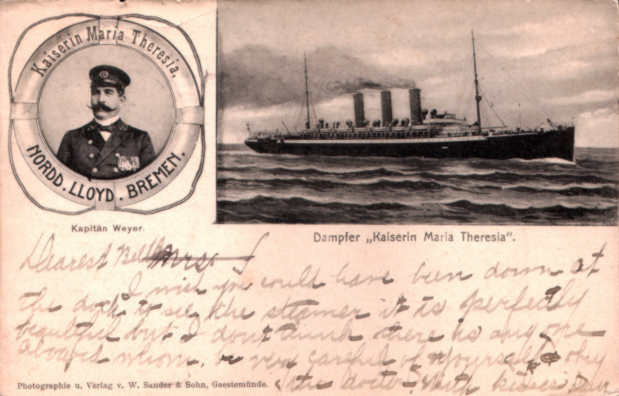 Kaiserin Maria Theresia.
NORDD. LLOYD. BREMEN.
Kapitän Weyer.
Dampfer „Kaiserin Maria Theresia".
Dearest
I wish you could have been down at
the dock to see the steamer it is perfectly
beautiful but I dont think there is any one
aboard whom. be very careful of yourself & obey
the doctor with kisses
Photographie u. Verlag v. W. Sander & Sohn, Geestemünde.